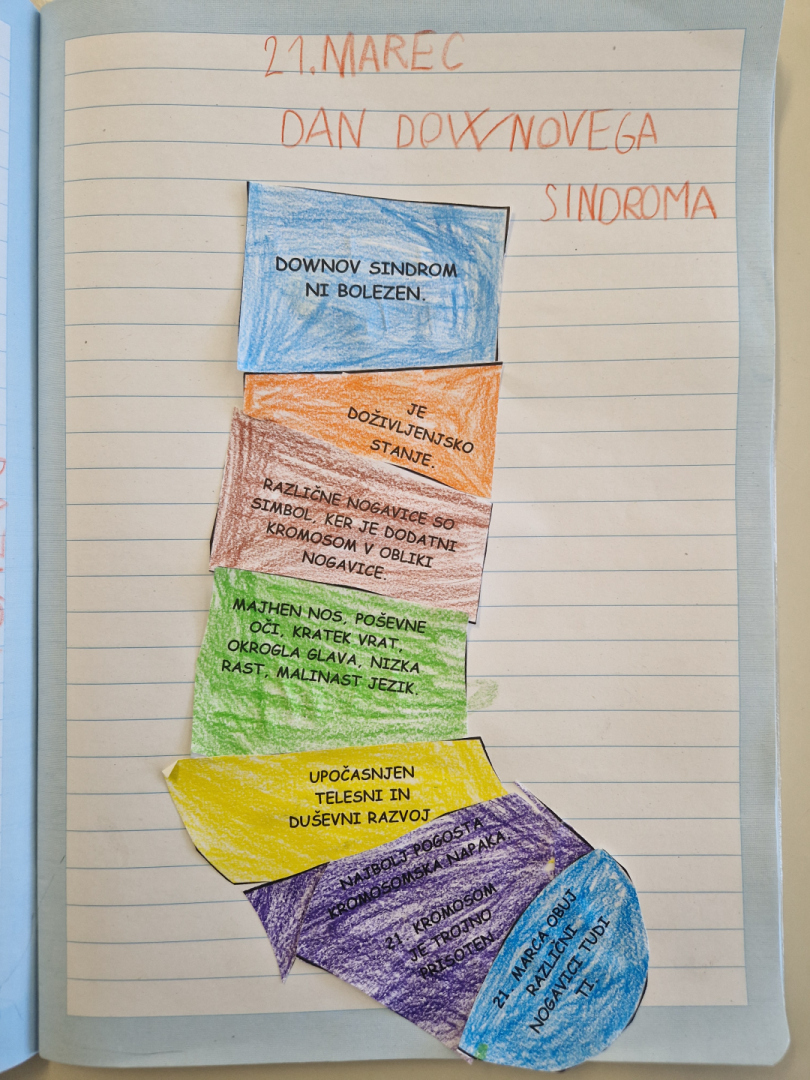 21. MAREC
DAN DOWNOVEGA
SINDROMA
DOWNOV SINDROM
NI BOLEZEN.
JE
DOŽIVLJENJSKO
STANJE.
RAZLIČNE NOGAVICE SO
SIMBOL, KER JE DODATNI
KROMOSOM V OBLIKI
NOGAVICE.
MAJHEN NOS, POŠEVNE
OČI, KRATEK VRAT,
OKROGLA GLAVA, NIZKA
RAST, MALINAST JEZIK.
UPOČASNJEN
TELESNI IN
DUŠEVNI RAZVOJ
NAJBOLJ POGOSTA
KROMOSOMSKA NAPAKA.
21. KROMOSOM
JE TROJNO
PRISOTEN
21. MARCA OBUJ
RAZLIČNI
NOGAVICI TUDI
TI